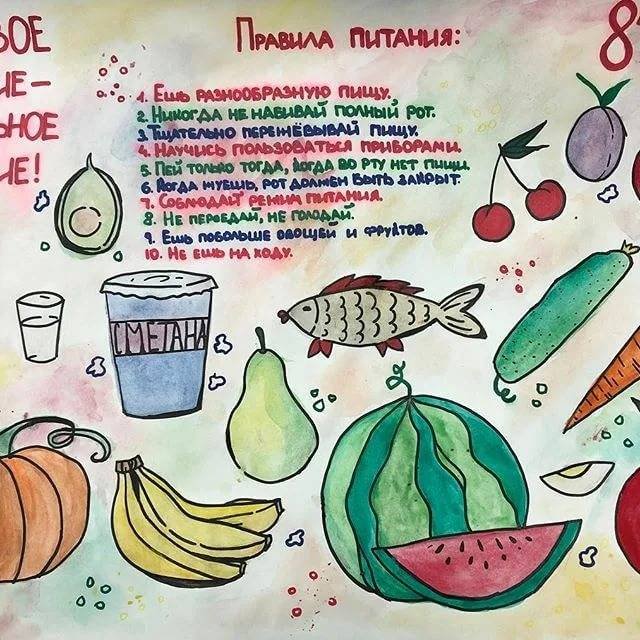 ВОЕ
ИЕ–
ЬНОЕ
ИЕ!
Правила питания:
8
1. Ешь разнообразную пищу.
2. Никогда не набивай полный рот.
3. Тщательно пережёвывай пищу.
4. Научись пользоваться приборами.
5. Пей только тогда, когда во рту нет пищи.
6. Когда жуёшь, рот должен быть закрыт.
7. Соблюдай режим питания.
8. Не переедай, не голодай.
9. Ешь побольше овощей и фруктов.
10. Не ешь на ходу.
СМЕТАНА